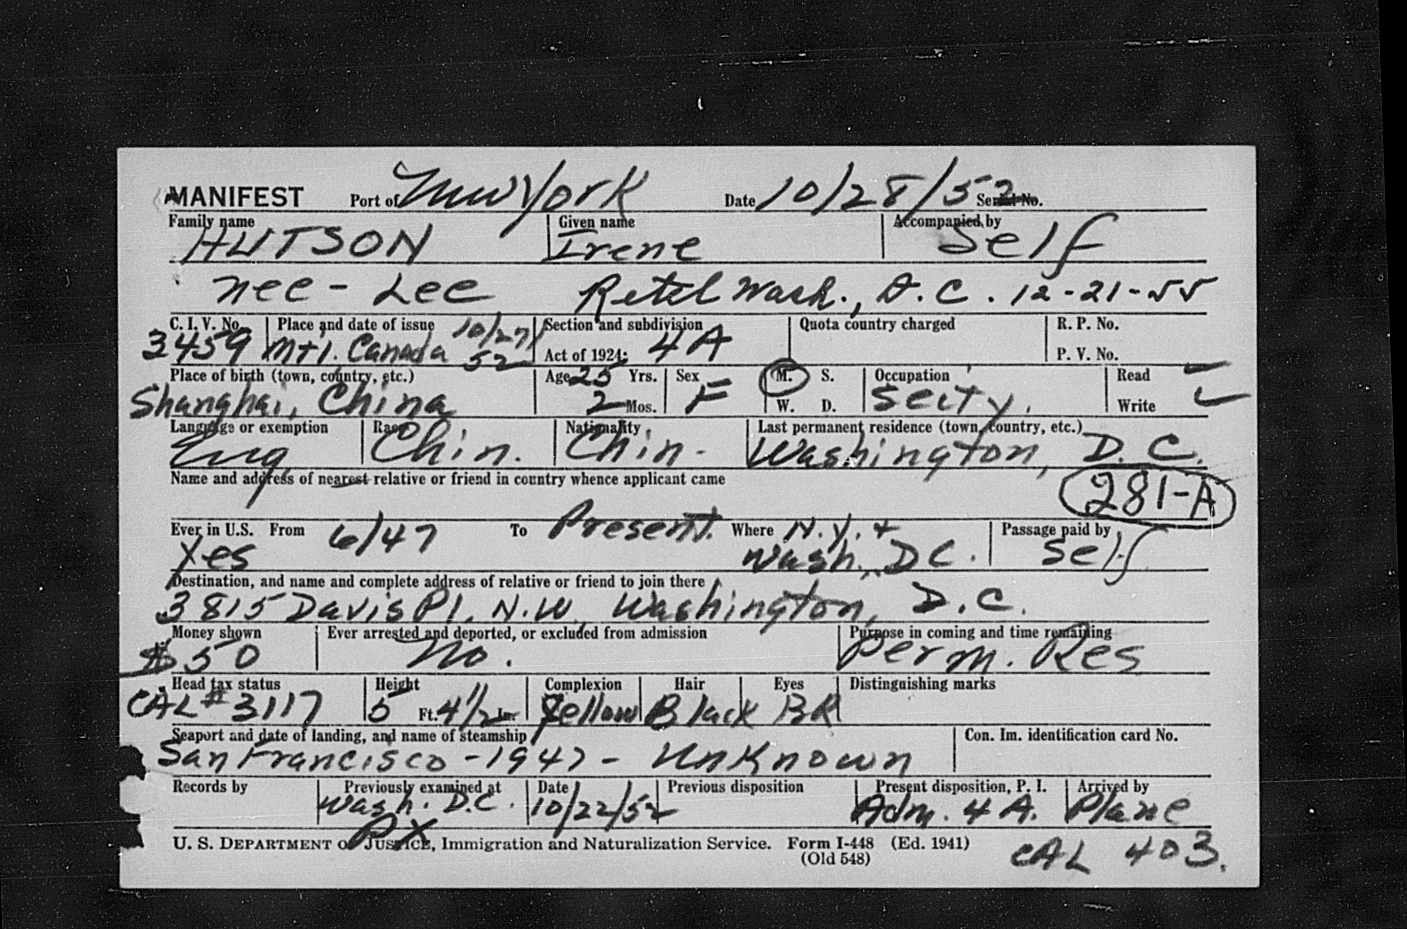 MANIFEST Port of New York Date 10/28/52 Serial No.
Family name Given name Accompanied by
HUTSON Irene Self
nee - Lee Retd Wash., D.C. 12-21-55
C. I. V. No. Place and date of issue 10/27/52 Section and subdivision Quota country charged R. P. No.
3459 Mtl. Canada Act of 1924: 4A P. V. No.
Place of birth (town, country, etc.) Age 25 Yrs. Sex M. S. Occupation Read
Shanghai, China 2 Mos. F W. D. Secty. Write
Language or exemption Race Nationality Last permanent residence (town, country, etc.)
Eng Chin. Chin. Washington, D.C.
Name and address of nearest relative or friend in country whence applicant came
281-A
Ever in U.S. From 6/47 To Present. Where N.Y. + Passage paid by
Yes Wash., DC. Self
Destination, and name and complete address of relative or friend to join there
3815 Davis Pl. N.W. Washington, D.C.
Money shown Ever arrested and deported, or excluded from admission Purpose in coming and time remaining
$50 No. Perm. Res
Head tax status Height Complexion Hair Eyes Distinguishing marks
CAL # 3117 5 Ft. 4 1/2 In. Yellow Black BR
Seaport and date of landing, and name of steamship Con. Im. identification card No.
San Francisco - 1947 - Unknown
Records by Previously examined at Date Previous disposition Present disposition, P. I. Arrived by
Wash. D.C. 10/22/52 Adm. 4A. Plane
PX
U. S. DEPARTMENT OF JUSTICE, Immigration and Naturalization Service. Form I-448 (Ed. 1941)
(Old 548)
CAL 403.